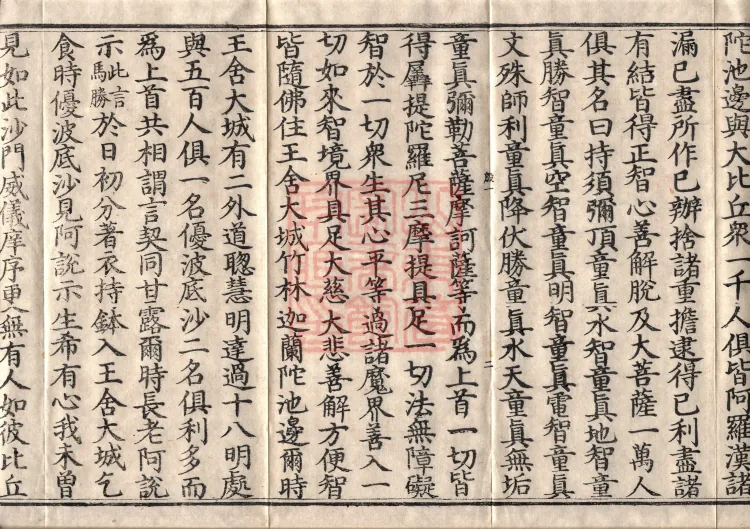 陀池邊與大比丘衆一千人俱皆阿羅漢諸
漏已盡所作已辦捨諸重擔逮得已利盡諸
有結皆得正智心善解脫及大菩薩一萬人
俱其名曰持須彌頂童真水智童真地智童
真勝智童真空智童真明智童真電智童真
文殊師利童真降伏勝童真水天童真無垢
童真彌勒菩薩摩訶薩等而為上首一切皆
得羼提陀羅尼三摩提具足一切法無障礙
智於一切衆生其心平等過諸魔界善入一
切如來智境界具足大慈大悲善解方便智
皆隨佛住王舍大城竹林迦蘭陀池邊爾時
王舍大城有二外道聰慧明達過十八明處
與五百人俱一名優波底沙二名俱利多而
為上首共相謂言契同甘露爾時長老阿說
示此言馬勝於日初分著衣持鉢入王舍大城乞
食時優波底沙見阿說示生希有心我未曾
見如此沙門威儀庠序更無有人如彼比丘